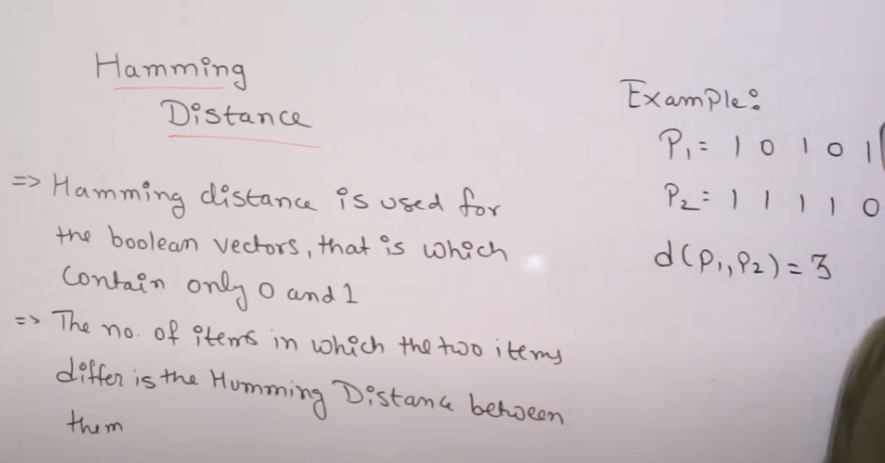 Hamming
Distance
=> Hamming distance is used for
the boolean vectors, that is which
Contain only 0 and 1
=> The no. of items in which the two items
differ is the Humming Distance between
them
Example:
P₁ = 1 0 1 0 1
P₂ = 1 1 1 1 0
d(P₁, P₂) = 3